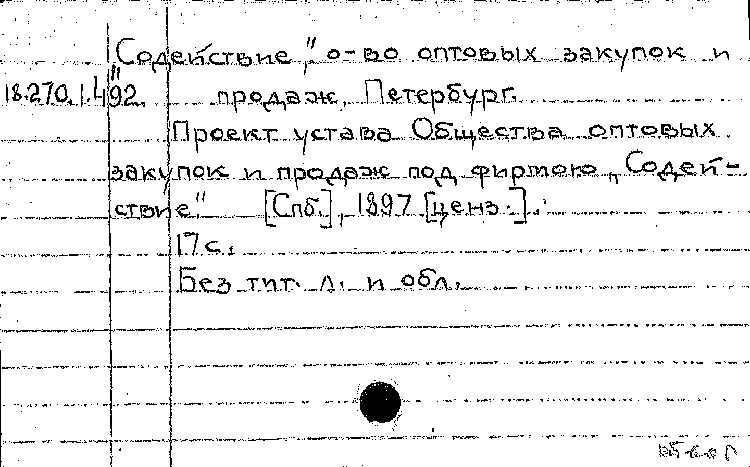 „Содействие", о-во оптовых закупок и
18.270.1.492. продаж, Петербург.
Проект устава Общества оптовых
закупок и продаж под фирмою „Содей-
ствие". [Спб.], 1897 [ценз.].
17 с.
Без тит. л. и обл.